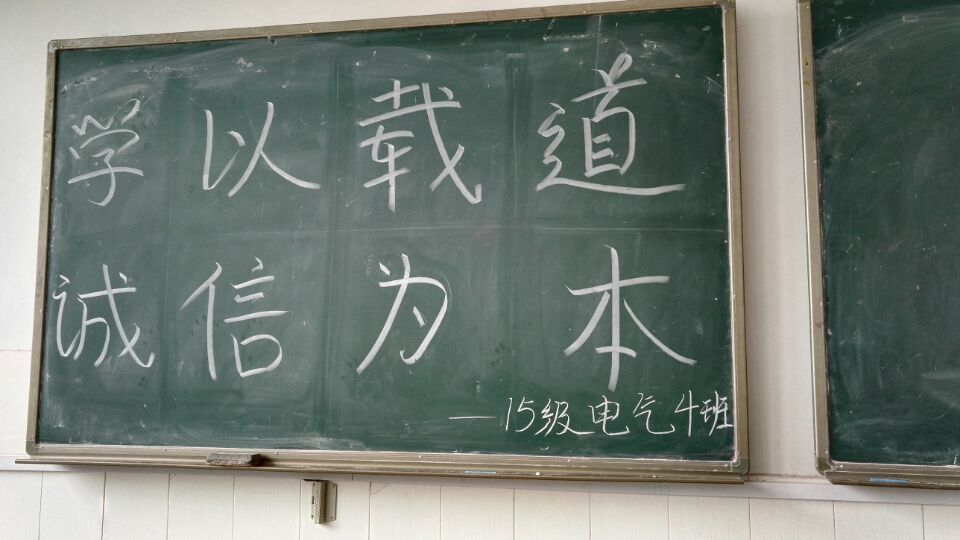 学以载道
诚信为本
—15级电气4班